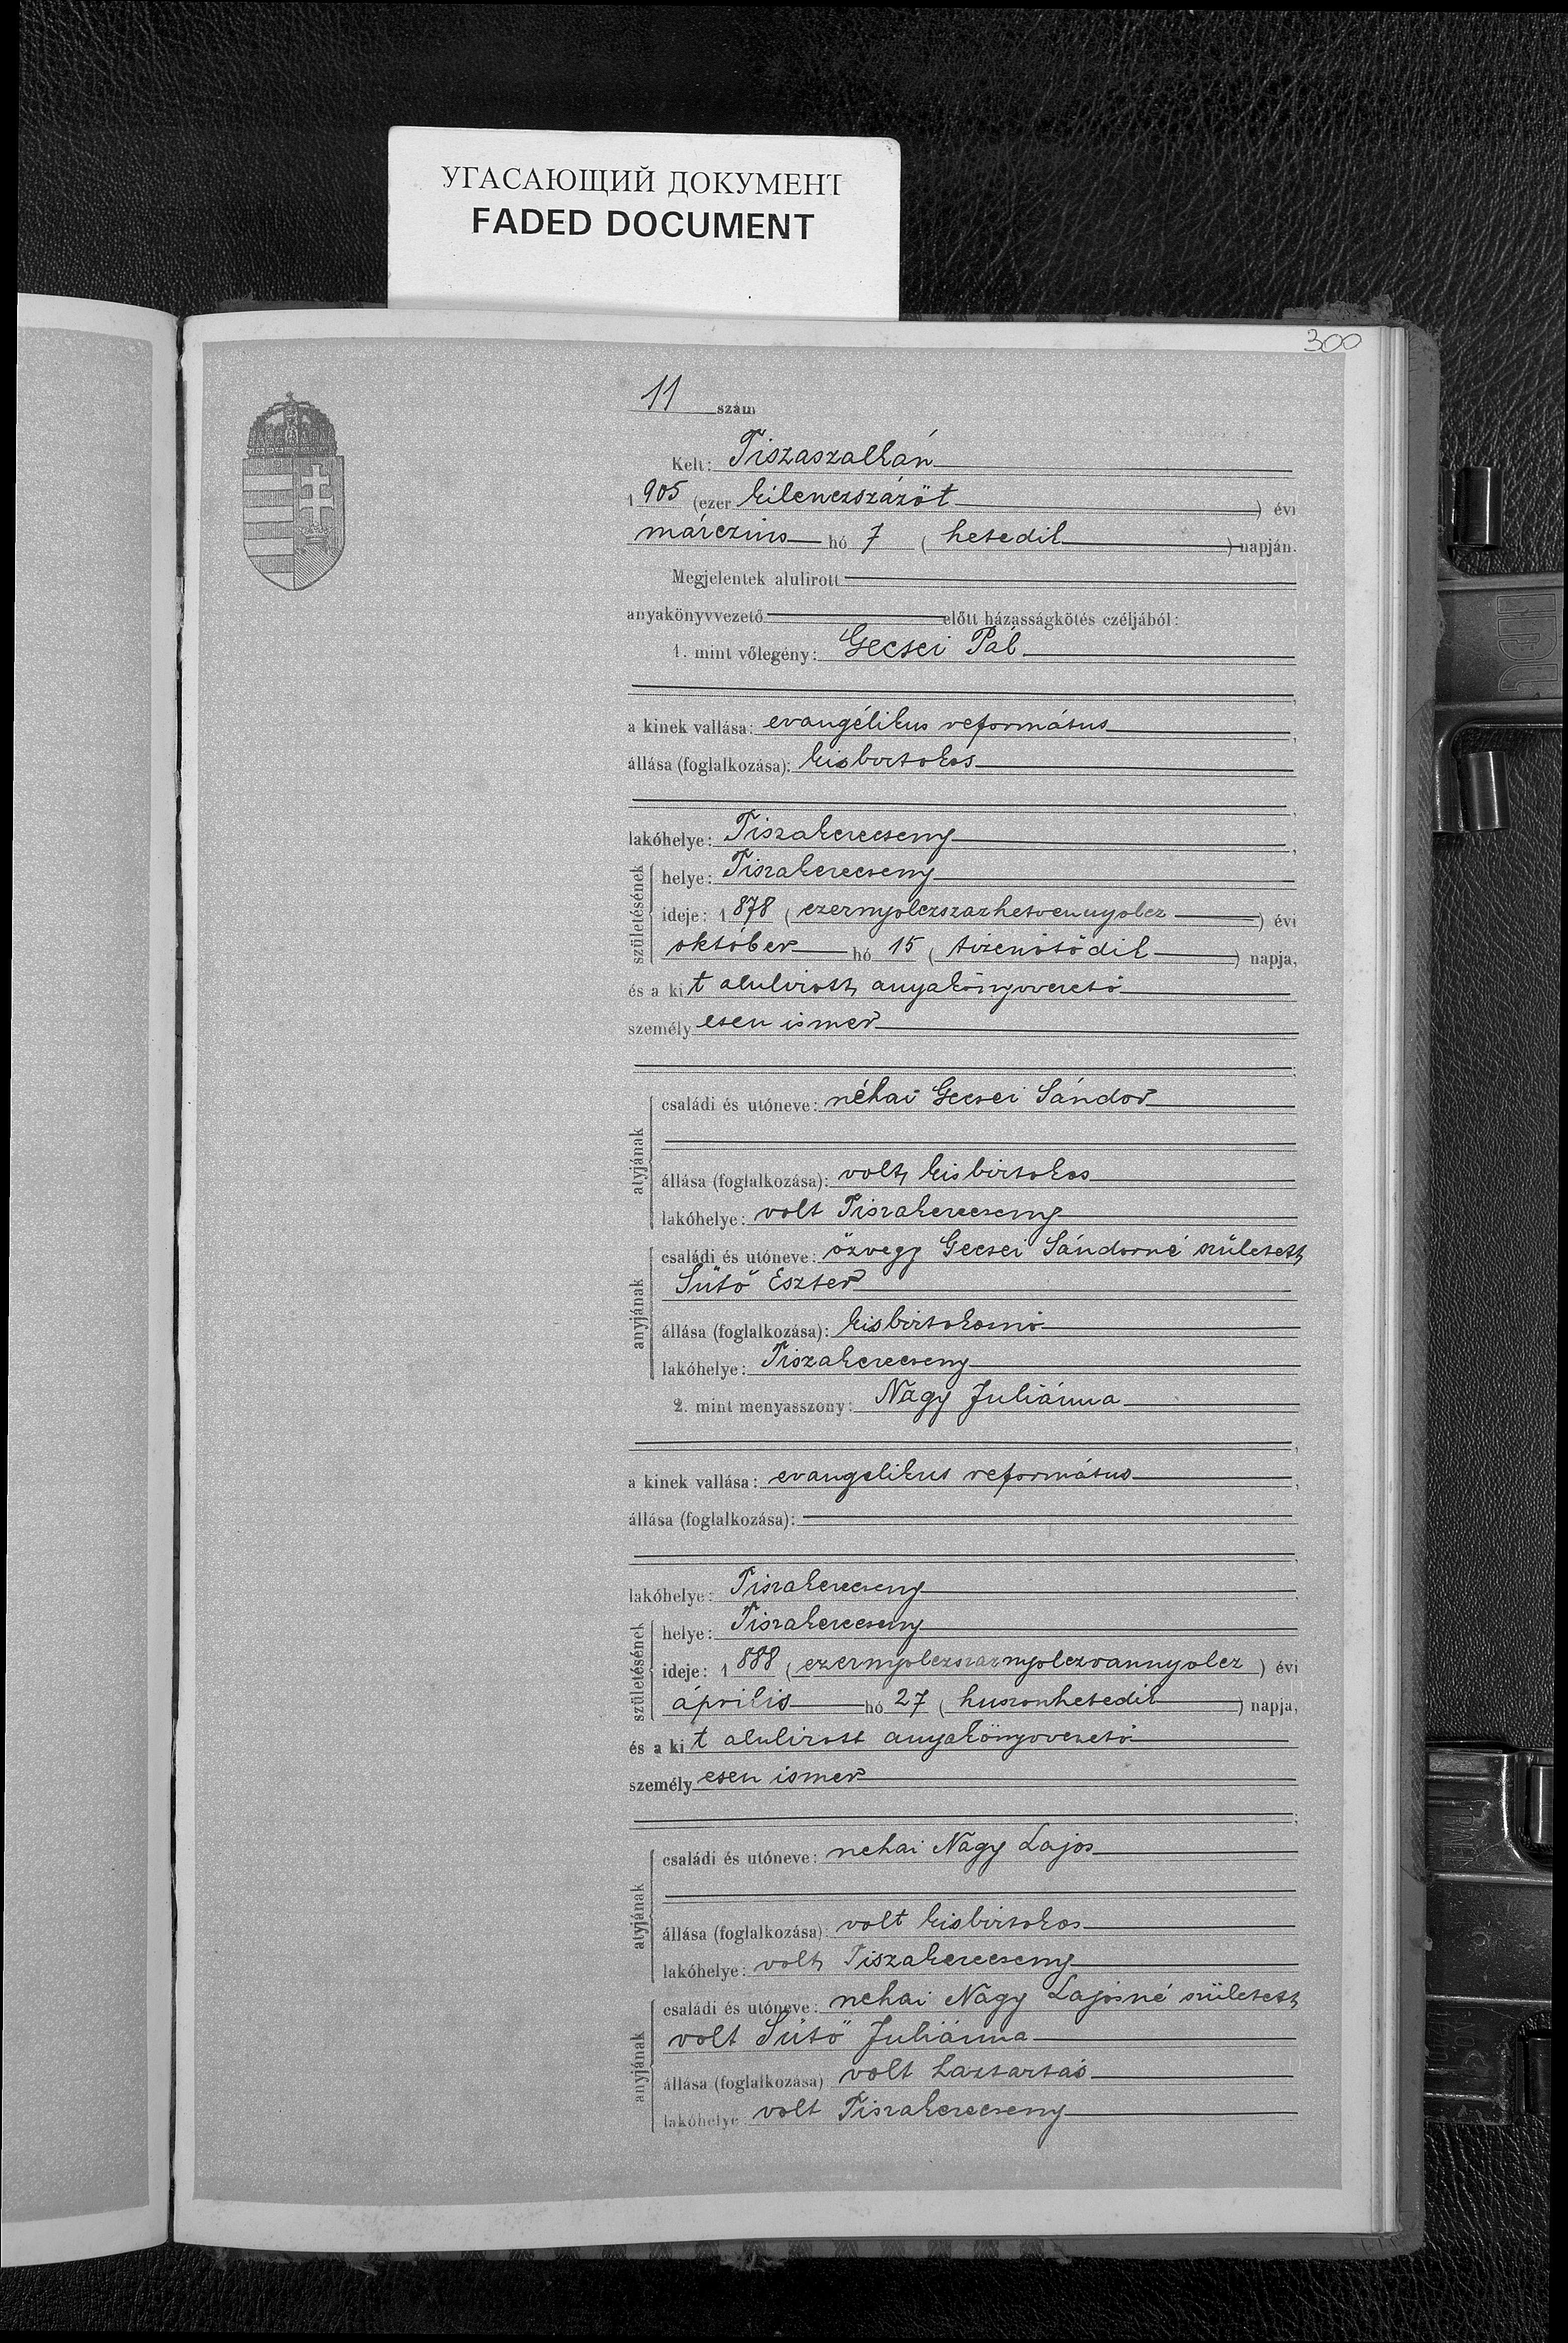 УГАСАЮЩИЙ ДОКУМЕНТ
FADED DOCUMENT
300
11 szám
Kelt: Tiszaszalkán
1905 (ezer kilenczszázöt) évi
márczius hó 7 (hetedik) napján.
Megjelentek alulirott
anyakönyvvezető előtt házasságkötés czéljából:
1. mint vőlegény: Gecsei Pál
a kinek vallása: evangélikus református,
állása (foglalkozása): kisbirtokos
lakóhelye: Tiszakerecseny,
születésének
helye: Tiszakerecseny
ideje: 1878 (ezernyolczszazhetvennyolcz) évi
október hó 15 (tizenötödik) napja,
és a kit alulirott anyakönyvvezető
személyesen ismer
atyjának
családi és utóneve: néhai Gecsei Sándor
állása (foglalkozása): volt kisbirtokos
lakóhelye: volt Tiszakerecseny
anyjának
családi és utóneve: özvegy Gecsei Sándorné született
Sütő Eszter
állása (foglalkozása): kisbirtokosnő
lakóhelye: Tiszakerecseny
2. mint menyasszony: Nagy Juliánna
a kinek vallása: evangelikus református,
állása (foglalkozása):
lakóhelye: Tiszakerecseny
születésének
helye: Tiszakerecseny
ideje: 1888 (ezernyolczszaznyolczvannyolcz) évi
április hó 27 (huszonhetedik) napja,
és a kit alulirott anyakönyvvezető
személyesen ismer
atyjának
családi és utóneve: nehai Nagy Lajos
állása (foglalkozása): volt kisbirtokos
lakóhelye: volt Tiszakerecseny
anyjának
családi és utóneve: nehai Nagy Lajosné született
volt Sütő Juliánna
állása (foglalkozása) volt haztartás
lakóhelye volt Tiszakerecseny